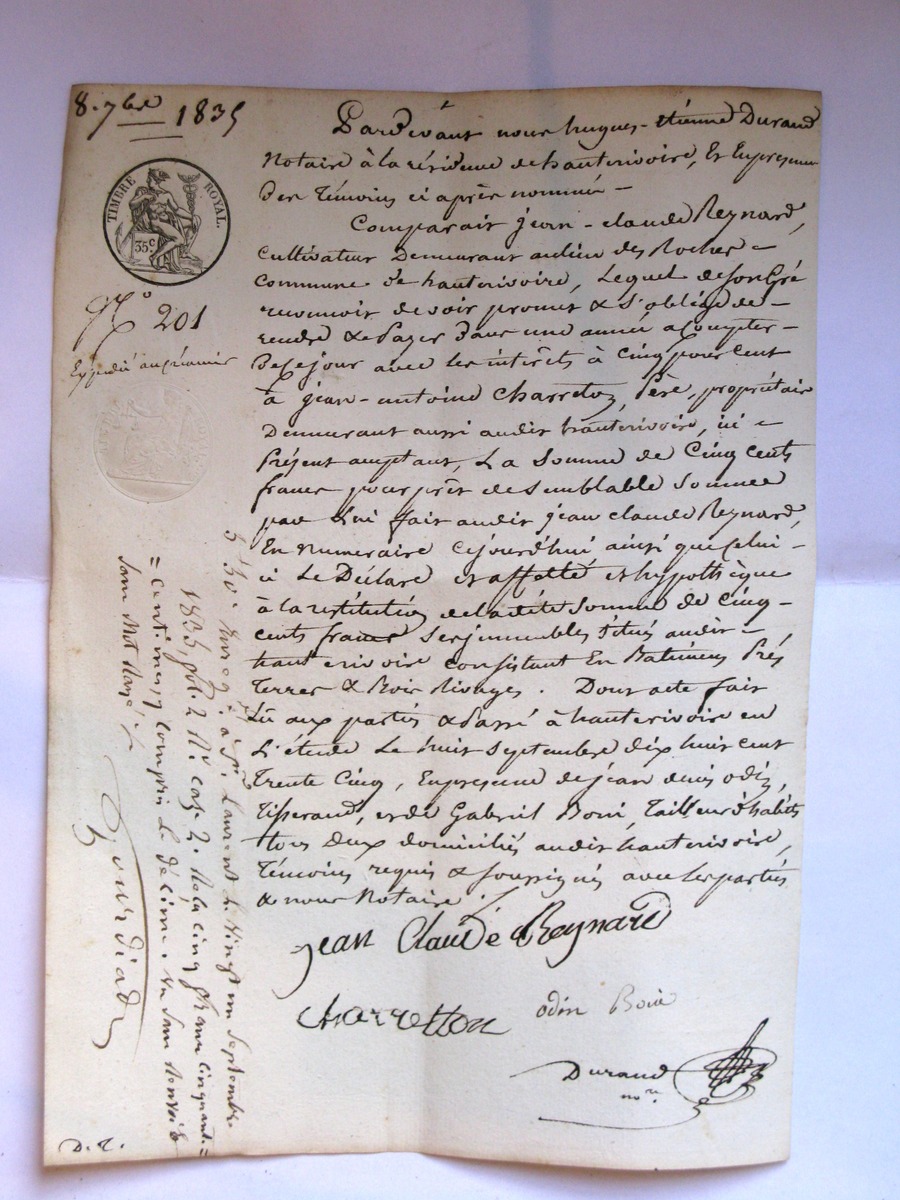 8. 7bre 1835
TIMBRE ROYAL.
35c
N° 201
Expédié au créancier
Pardevant nous hugues-étienne Durand
Notaire à la résidence de hauterivoire, Et En presence
Des Témoins ci après nommés -
Comparait jean-claude Reynard,
cultivateur Demeurant au lieu des Rocher -
commune de hauterivoire, Lequel de son Gré
reconnoit devoir promet & s'oblige de -
rendre & de Payer Dans une année à compter -
De ce jour avec les interêts à cinq pour cent
à jean-antoine Charreton, Père, propriétaire
Demeurant aussi audit hauterivoire, ici -
Présent acceptant, La Somme de Cinq cents
francs pour prêt de semblable Somme
par Lui fait audit jean claude Reynard,
En numeraire cejourd'hui ainsi que celui -
ci Le Déclare et affecté et hypothèque
à la restitution de ladite Somme de Cinq -
cents francs ses immeubles situés audit -
hauterivoire consistant En Batimens Prés
Terres & Bois Rivages. Dont acte fait
Lû aux partiés & Passé à hauterivoire en
L'étude Le huit septembre dix huit cent
Trente Cinq, En presence de jean denis odin,
Tisserand, et de Gabriel Boni, Tailleur d'habits
tous deux domiciliés audit hauterivoire,
Témoins requis & soussignés avec les partiés
& nous Notaire
jean Claude Reynard
charretton
odin
Durand
nore
Enreg. à St. Laurent le Vingt un Septembre
1835, fol. 2 Vo case 2. Reçu cinq francs cinquante =
= centimes, y compris le décime, &a Sans Renvoi &
Sans Mot Rayé
D. T.